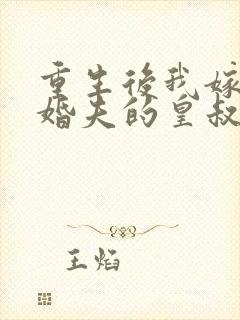 重生後我嫁
婚夫的皇叔
王焰